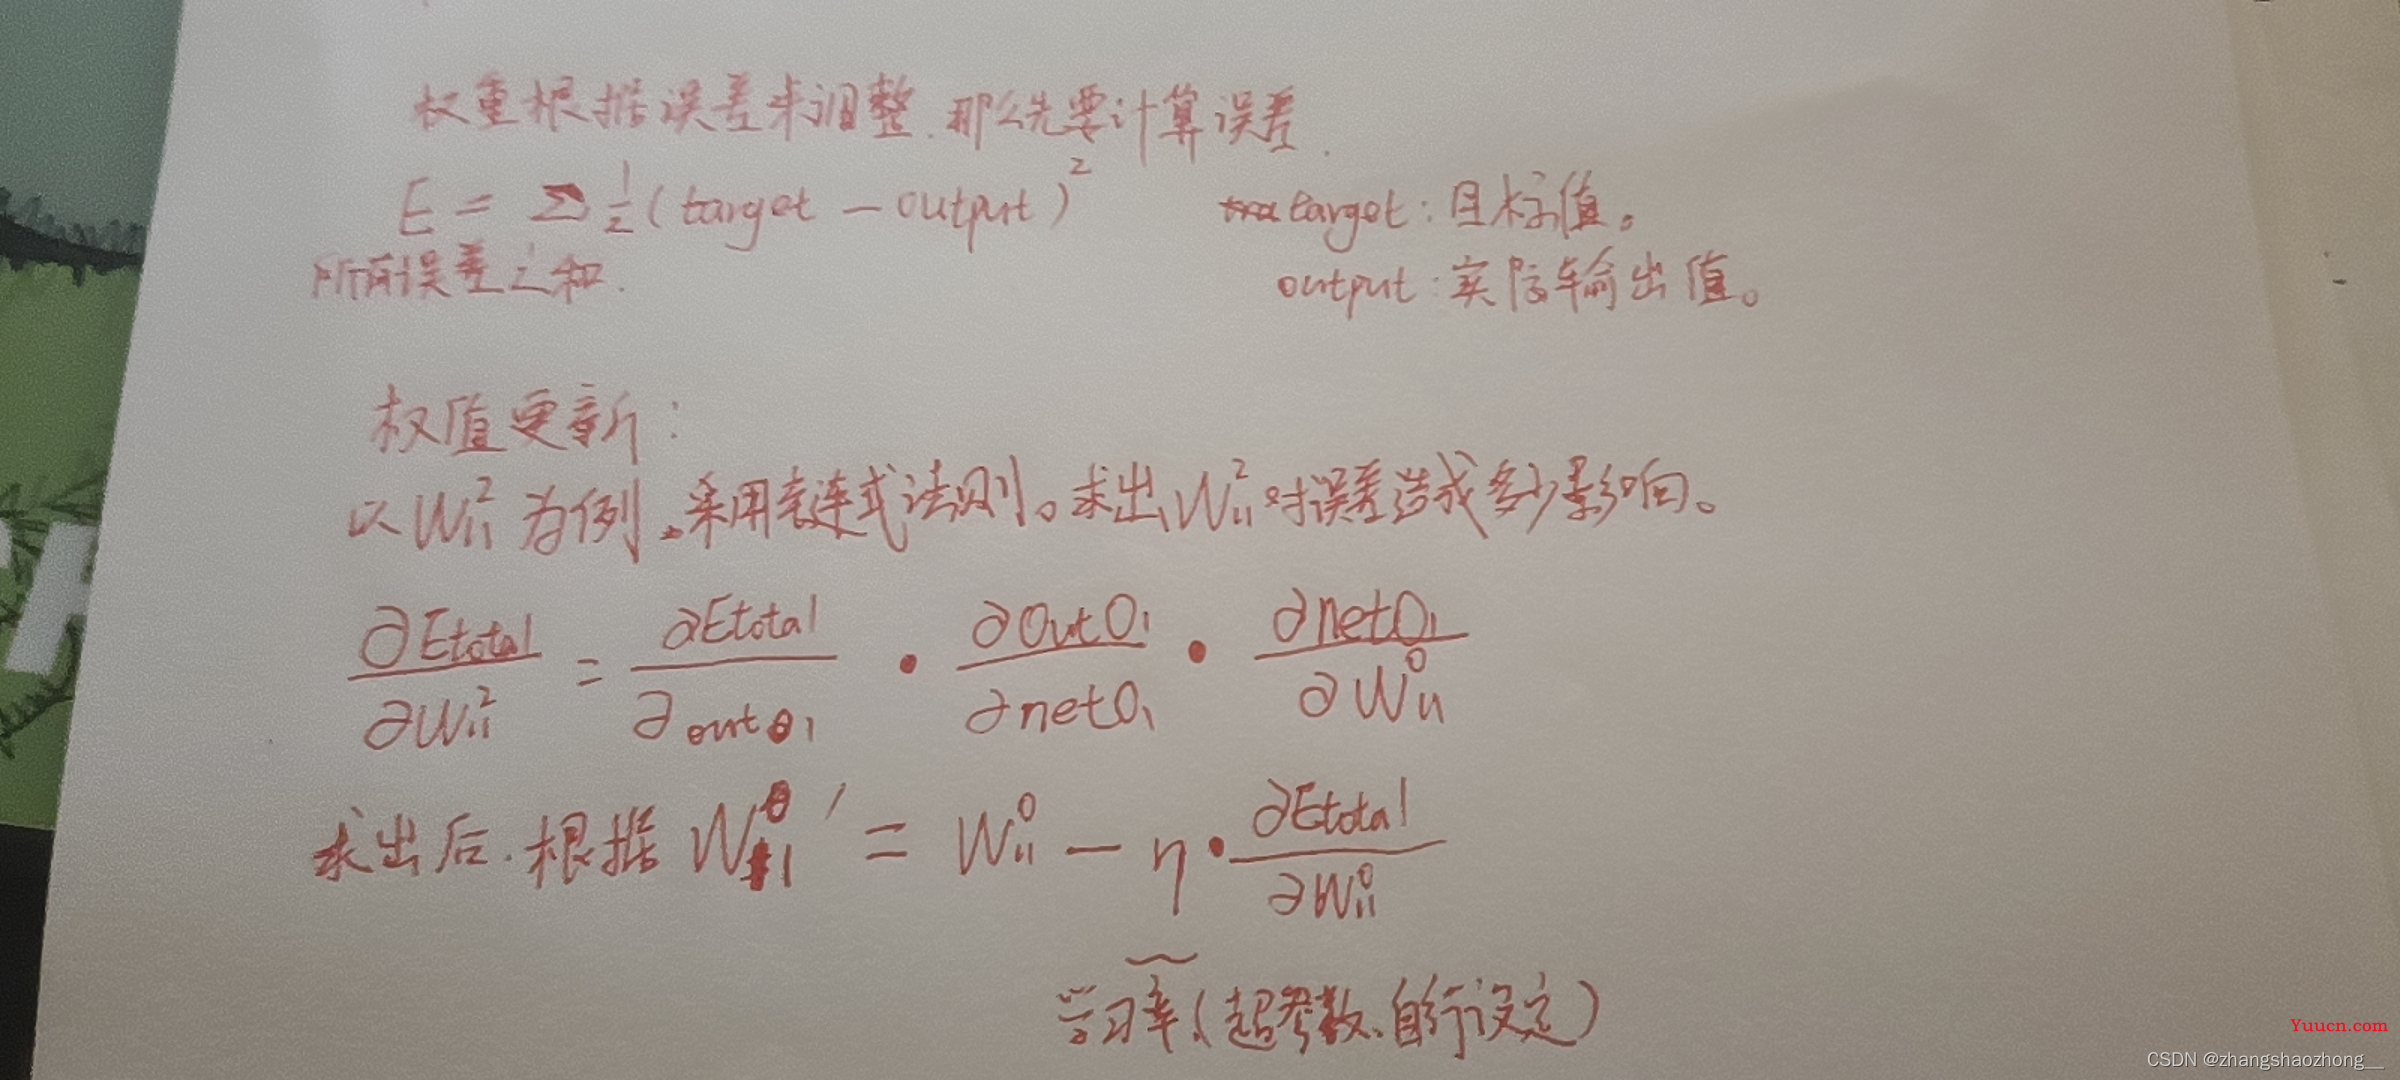 权重根据误差来调整.那么先要计算误差.
E = Σ 1/2 (target - output)²
target: 目标值。
所有误差之和.
output: 实际输出值。
权值更新:
以 W₁₁² 为例,采用链式法则。求出 W₁₁² 对误差造成多少影响。
∂Etotal/∂W₁₁² = ∂Etotal/∂outO₁ • ∂outO₁/∂netO₁ • ∂netO₁/∂W₁₁⁰
求出后.根据 W₁₁⁰′ = W₁₁⁰ - η • ∂Etotal/∂W₁₁⁰
学习率(超参数、自行设定)
Yuucn.com
CSDN @zhangshaozhong__